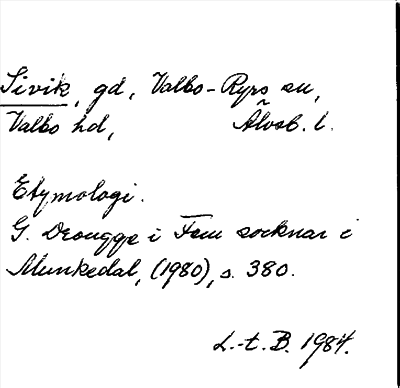 Sivik, gd, Valbo-Ryrs sn,
Valbo hd, Älvsb. l.
Etymologi.
G. Drougge i Fem socknar i
Munkedal, (1980), s. 380.
L.-t. B. 1984.